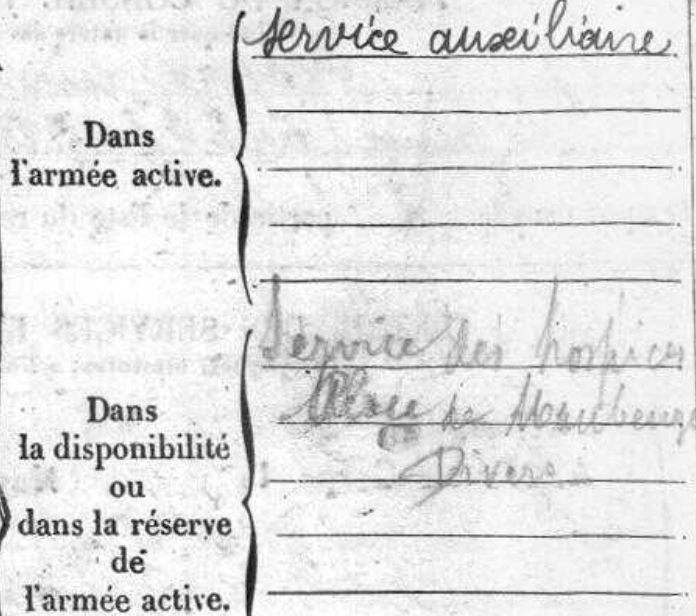 service auxiliaire
Dans
l'armée active.
Service des hospices
Place de Maubeuge
Divers
Dans
la disponibilité
ou
dans la réserve
de
l'armée active.